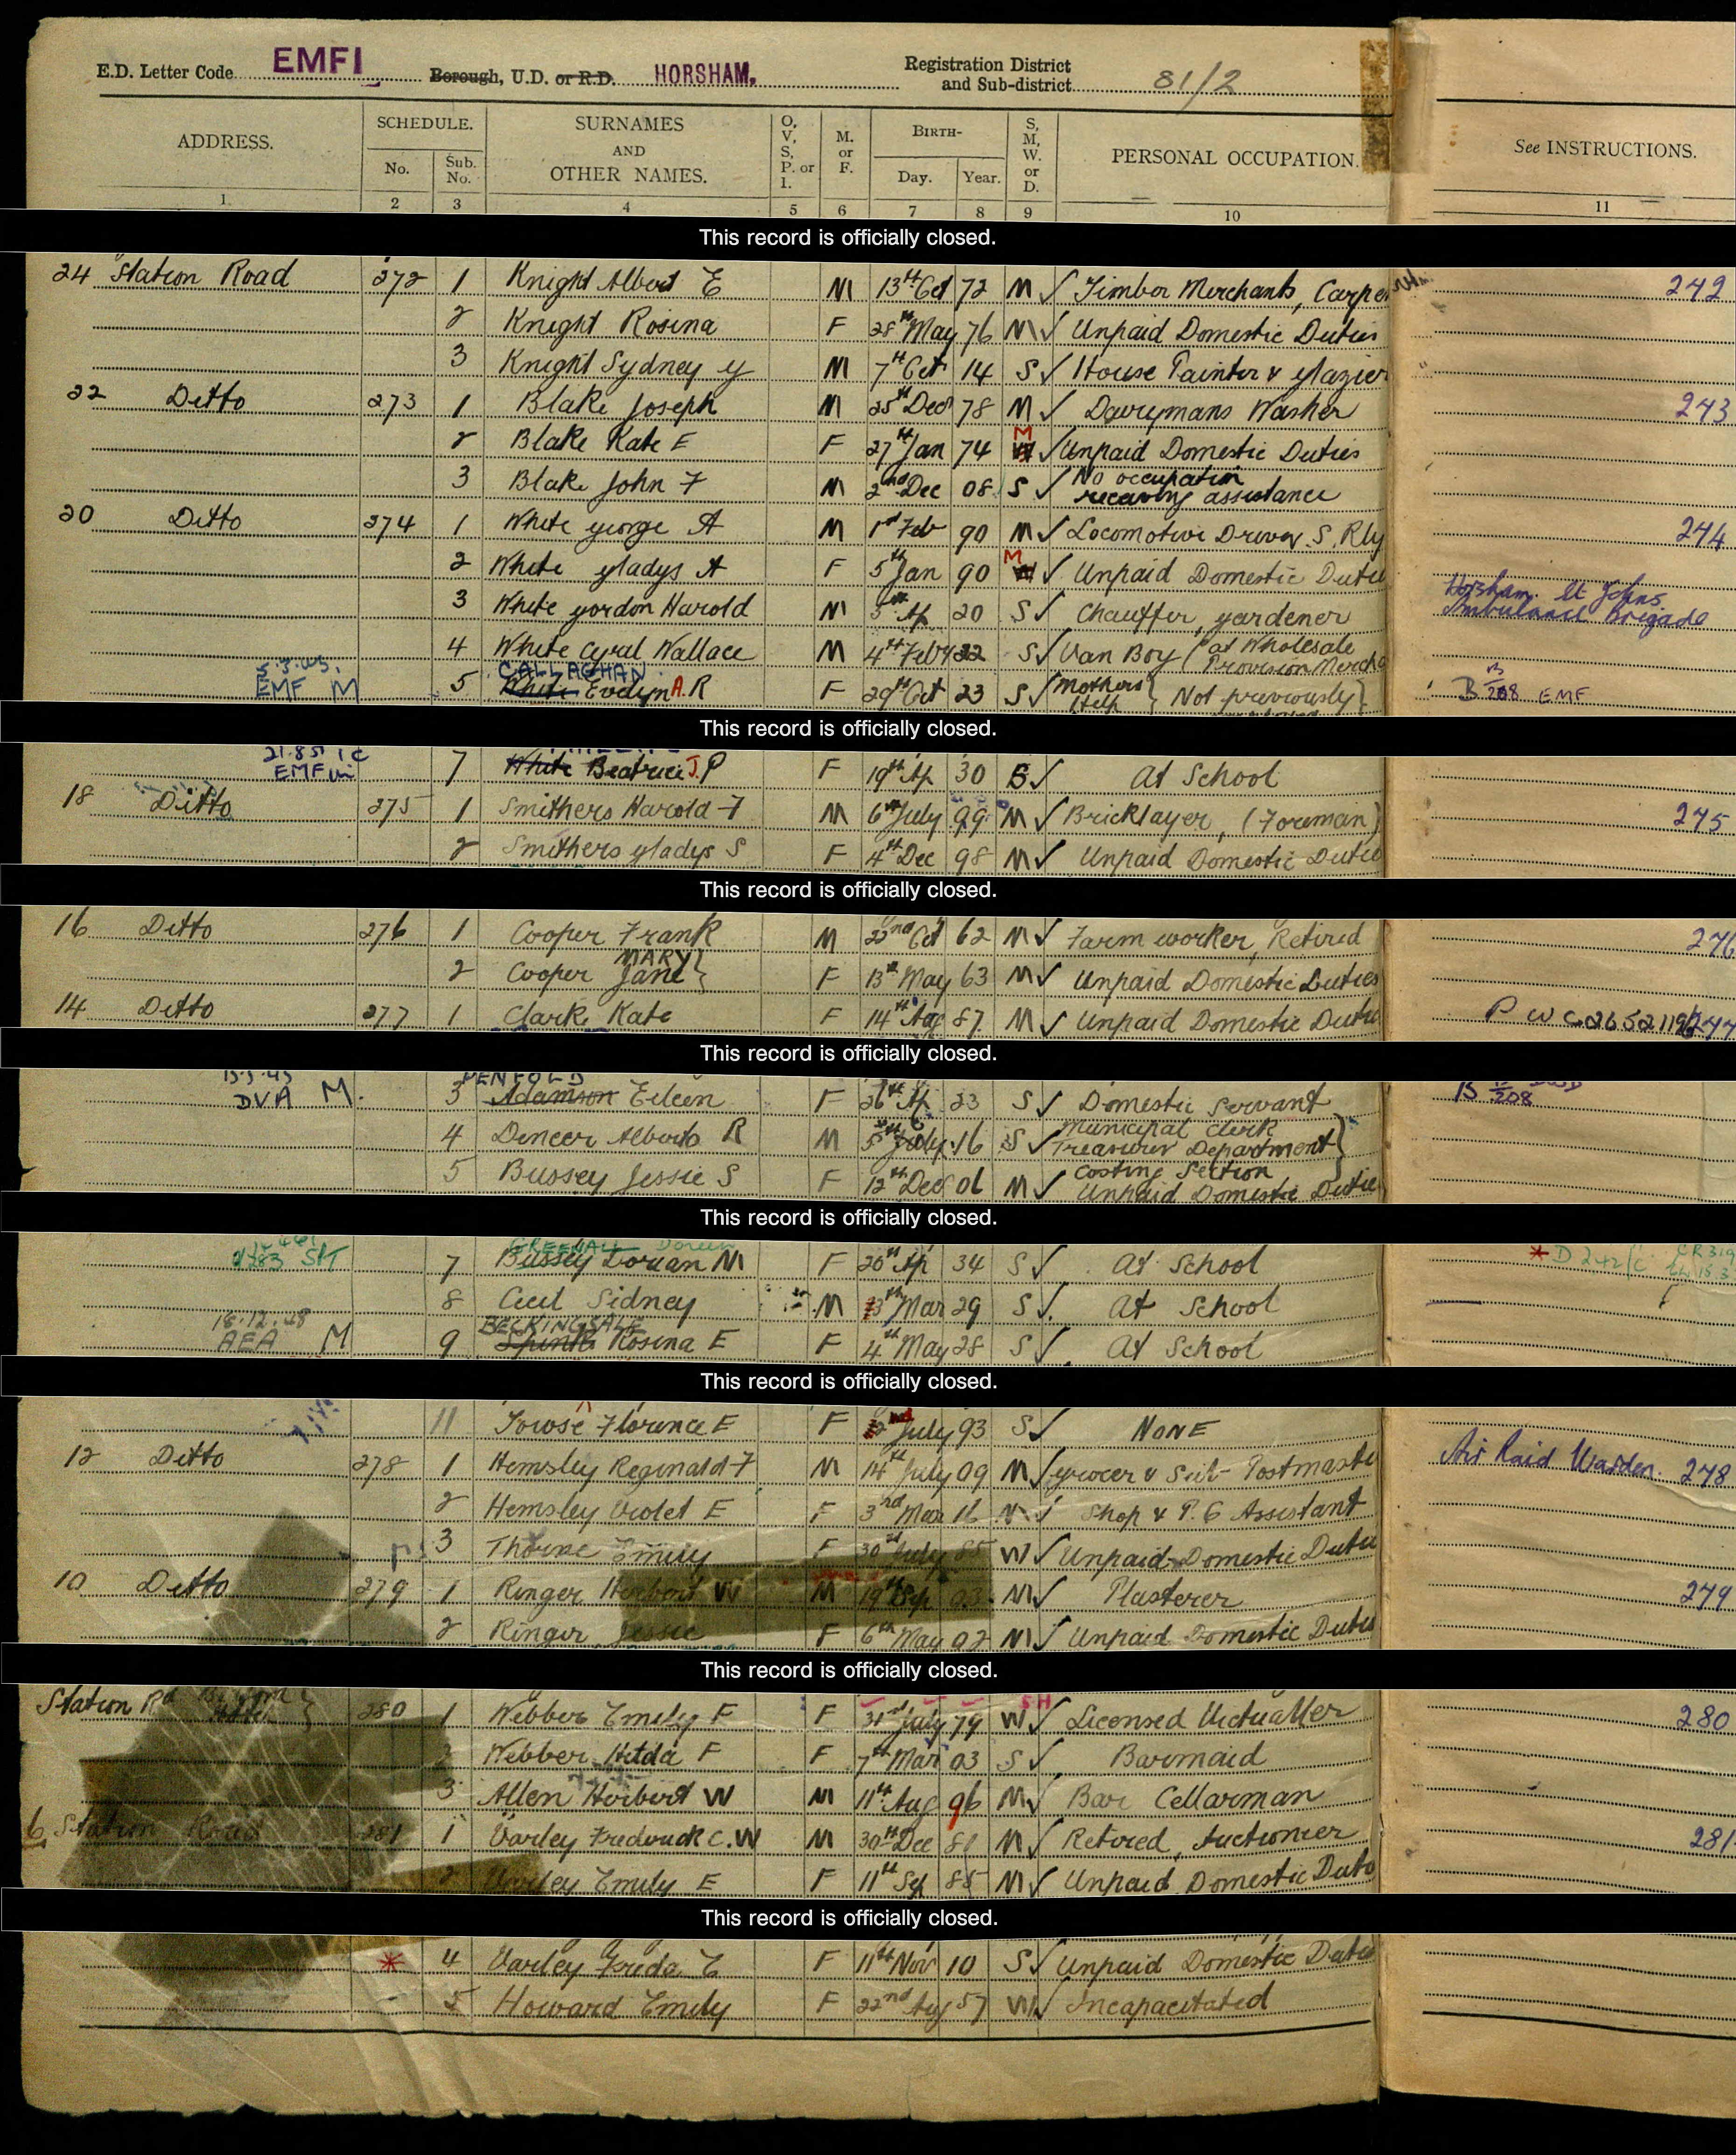 E.D. Letter Code EMFI Borough, U.D. or R.D. HORSHAM. Registration District and Sub-district 81/2
ADDRESS. SCHEDULE. No. Sub. No. SURNAMES AND OTHER NAMES. O, V, S, P. or I. M. or F. BIRTH- Day. Year. S, M, W. or D. PERSONAL OCCUPATION. See INSTRUCTIONS.
1 2 3 4 5 6 7 8 9 10 11
This record is officially closed.
24 Station Road 272 1 Knight Albert E M 13th Oct 72 M ✓ Timber Merchants, Carpen 242
2 Knight Rosina F 28th May 76 M ✓ Unpaid Domestic Duties
3 Knight Sydney G M 7th Oct 14 S ✓ House Painter & Glazier
22 Ditto 273 1 Blake Joseph M 25th Dec 78 M ✓ Dairymans Washer 243
2 Blake Kate E F 27th Jan 74 M ✓ Unpaid Domestic Duties
3 Blake John F M 2nd Dec 08 S ✓ No occupation receiving assistance
20 Ditto 274 1 White George A M 1st Feb 90 M ✓ Locomotive Driver S. Rly 244
2 White Gladys A F 5th Jan 90 M ✓ Unpaid Domestic Dutie
3 White Gordon Harold M 5th Ap 20 S ✓ Chauffer, Gardener Horsham St Johns Ambulance Brigade
4 White Cyral Wallace M 4th Feby 22 S ✓ Van Boy (at Wholesale Provision Mercha
5.3.45. EMF M 5 CALLAGHAN White Evelyn A. R F 29th Oct 23 S ✓ Mothers Help } Not previously } B 208 EMF
This record is officially closed.
21.8.51 EMF 7 White Beatrice J. P F 19th Ap 30 S ✓ At School
18 Ditto 275 1 Smithers Harold F M 6th July 99 M ✓ Bricklayer, (Foreman) 275
2 Smithers Gladys S F 4th Dec 98 M ✓ Unpaid Domestic Dutie
This record is officially closed.
16 Ditto 276 1 Cooper Frank M 22nd Oct 62 M ✓ Farm worker, Retired 276
2 Cooper MARY Jane } F 13th May 63 M ✓ Unpaid Domestic Duties
14 Ditto 277 1 Clarke Kate F 14th Aug 87 M ✓ Unpaid Domestic Dutie P W 277
This record is officially closed.
DVA M. 3 PENFOLD Adamson Eileen F 26th Ap 23 S ✓ Domestic Servant B 208
4 Dencer Alberto R M 5th July 16 S ✓ Municipal Clerk Treasurer Department }
5 Bussey Jessie S F 12th Dec 06 M ✓ Costing Section Unpaid Domestic Dutie
This record is officially closed.
7 GREENALL Doreen Bussey Dorian M F 20th Ap 34 S ✓ At School
8 Cecil Sidney M 3th Mar 29 S ✓ At School
18.12.48 AEA M 9 BECKINGSALE Spink Rosina E F 4th May 28 S ✓ At School
This record is officially closed.
11 Towse Florence E F 2nd July 93 S ✓ NONE
12 Ditto 278 1 Hemsley Reginald F M 14th July 09 M ✓ Grocer & Sub-Postmaste Air Raid Warden. 278
2 Hemsley Violet E F 3rd Mar 16 M ✓ Shop & P.O Assistant
3 Thorne Emily F 30th July 85 W ✓ Unpaid Domestic Dutie
10 Ditto 279 1 Ringer Herbert W M 19th Sep 03 M ✓ Plasterer 279
2 Ringer Jessie F 6th May 02 M ✓ Unpaid Domestic Duties
This record is officially closed.
Station Rd 280 1 Webber Emily F F 31st July 79 W ✓ Licensed Victualler 280
2 Webber Hilda F F 7th Mar 03 S ✓ Barmaid
3 Allen Herbert W M 11th Aug 96 M ✓ Bar Cellarman
6 Station Road 281 1 Varley Fredrick C. W M 30th Dec 81 M ✓ Retired, Auctionier 281
2 Varley Emily E F 11th Sep 85 M ✓ Unpaid Domestic Dutie
This record is officially closed.
* 4 Varley Freda E F 11th Nov 10 S ✓ Unpaid Domestic Dutie
5 Howard Emily F 22nd Aug 57 W ✓ Incapacitated